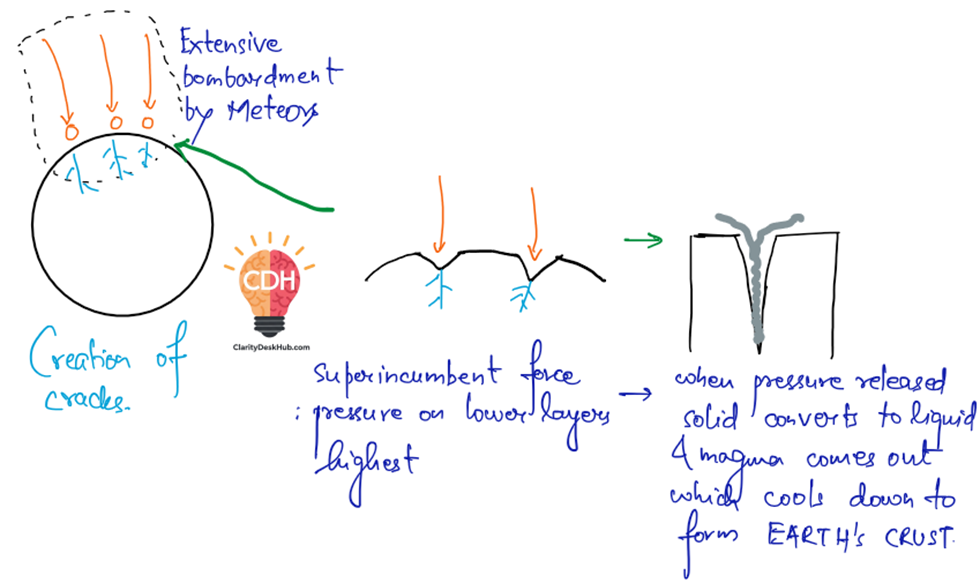 Extensive
bombardment
by Meteors
CDH
ClarityDeskHub.com
Creation of
cracks.
superincumbent force
: pressure on lower layers
highest
when pressure released
solid converts to liquid
& magma comes out
which cools down to
form EARTH's CRUST.